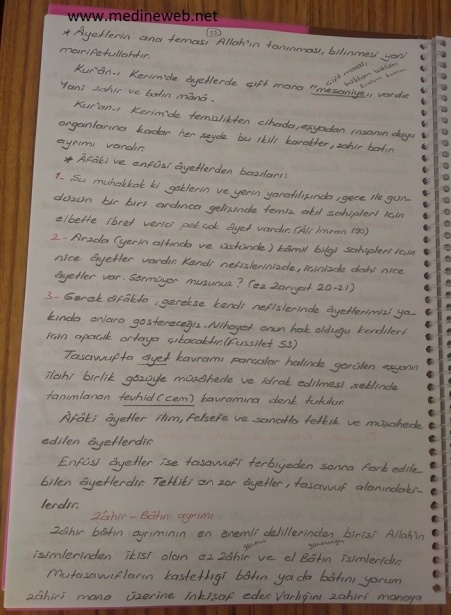 www.medineweb.net
33
* Âyetlerin ana teması Allah'ın tanınması, bilinmesi yani
marifetullahtır.
Kur'ân-ı Kerim'de âyetlerde çift mana "mesaniye" vardır
çift manalı,
büklüm büklüm
kıvrım kıvrım
Yani zahir ve batın mânâ.
Kur'an-ı Kerim'de temizlikten cihada, eşyadan insanın duyu
organlarına kadar her şeyde bu ikili karakter, zahir batın
ayrımı vardır.
* Âfâki ve enfüsi âyetlerden bazıları:
1- Şu muhakkak ki göklerin ve yerin yaratılışında, gece ile gün-
düzün bir biri ardınca gelişinde temiz akıl sahipleri için
elbette ibret verici pek çok âyet vardır. (Âli İmran 190)
2- Arzda (yerin altında ve üstünde) kâmil bilgi sahipleri için
nice âyetler vardır. Kendi nefislerinizde, içinizde dahi nice
âyetler var. Görmüyor musunuz? (ez Zariyat 20-21)
3- Gerek âfâkta, gerekse kendi nefislerinde âyetlerimizi ya-
kında onlara göstereceğiz. Nihayet onun hak olduğu kendileri
için apaçık ortaya çıkacaktır. (Fussilet 53)
Tasavvufta âyet kavramı parçalar halinde görülen eşyanın
ilahi birlik gözüyle müşâhede ve idrak edilmesi şeklinde
tanımlanan tevhid (cem) kavramına denk tutulur.
Âfâki âyetler ilim, felsefe ve sanatla tetkik ve müşahede
edilen âyetlerdir.
Enfüsi âyetler ise tasavvufi terbiyeden sonra fark edile-
bilen âyetlerdir. Tetkiki en zor âyetler, tasavvuf alanındaki-
lerdir.
Zâhir - Bâtın ayrımı
Zâhir bâtın ayrımının en önemli delillerinden birisi Allah'ın
isimlerinden ikisi olan ez Zâhir ve el Bâtın isimleridir.
Mutasavvıfların kastettiği bâtın ya da bâtıni yorum
zâhiri mana üzerine inkişaf eder. Varlığını zahiri manaya